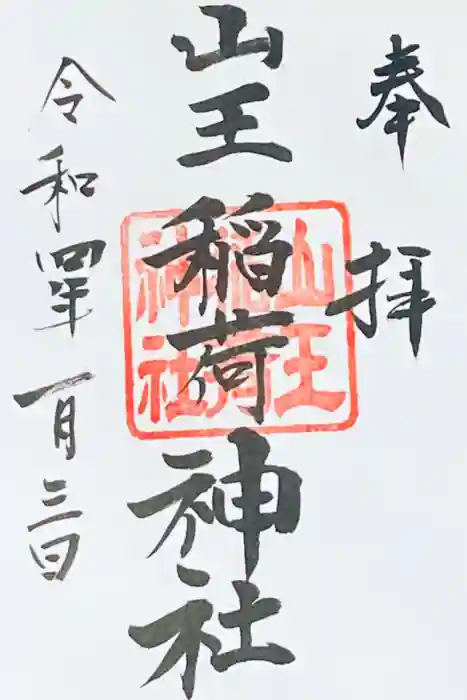 奉拝
山王稲荷神社
山王稲荷神社
令和四年一月三日